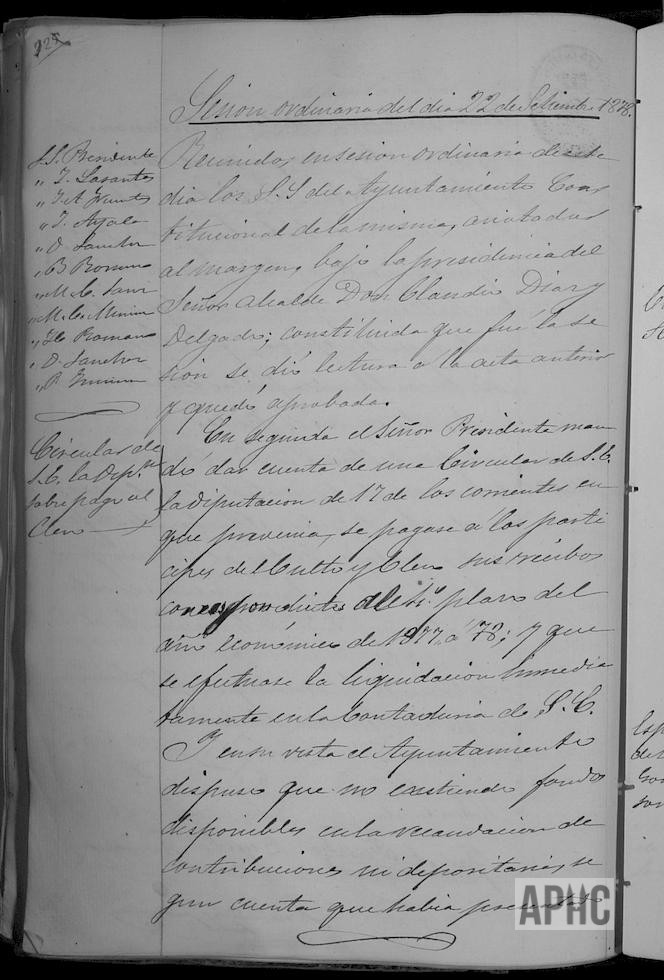 225
Sesion ordinaria del dia 22 de Setiembre 1878.
S.S. Presidente
" T. Lasantes
" T. Ayala
" D. Sanchez
" B Romano
" M. C.
" M. C.
" Romano
" D. Sanchez
" P.
Circular de
S.E. la Dipn.
sobre pago al
Clero
Reunidos en sesion ordinaria de este
dia los S.S del Ayuntamiento Cons
titucional de la misma, anotados
al margen, bajo la presidencia del
Señor Alcalde Don Claudio Diaz y
Delgado; constituida que fué la se
sion se dió lectura á la acta anterior
y quedó aprobada.
En seguida el Señor Presidente man
dó dar cuenta de una Circular de S.E.
la Diputacion de 17 de los corrientes en
que prevenia, se pagase á los parti
cipes del Culto y Clero sus recibos
correspondientes al 4º plazo del
año económico de 1877 á 78; y que
se efectuase la liquidacion inmedia
tamente en la Contaduria de S.E.
Y en su vista el Ayuntamiento
dispuso que no existiendo fondos
disponibles en la recaudacion de
contribuciones ni depositaria, se
gun cuenta que habia presentado
APHC